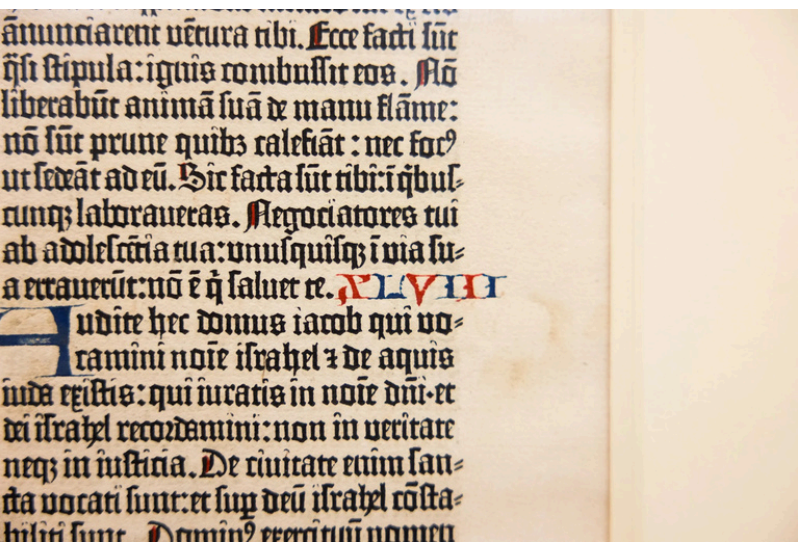 ānunciarent uētura tibi. Ecce facti sūt
q̄si stipula: ignis combussit eos. Nō
liberabūt animā suā de manu flāme:
nō sūt prune quibꝫ calefiāt: nec focꝰ
ut sedeāt ad eū. Sic facta sūt tibi: ī qͥbus⸗
cunqꝫ laboraueras. Negociatores tui
ab adolescētia tua: unusquisqꝫ ī via su⸗
a errauerūt: nō ē qͥ saluet te. XLVIII
Audite hec domus iacob qui vo⸗
camini noīe israhel ⁊ de aquis
iuda existis: qui iuratis in noīe dn̄i· et
dei israhel recordamini: non in veritate
neqꝫ in iusticia. De ciuitate enim san⸗
cta vocati sunt: et suꝑ deū israhel cōsta⸗
biliti sunt. Dominꝰ exercituū nomen